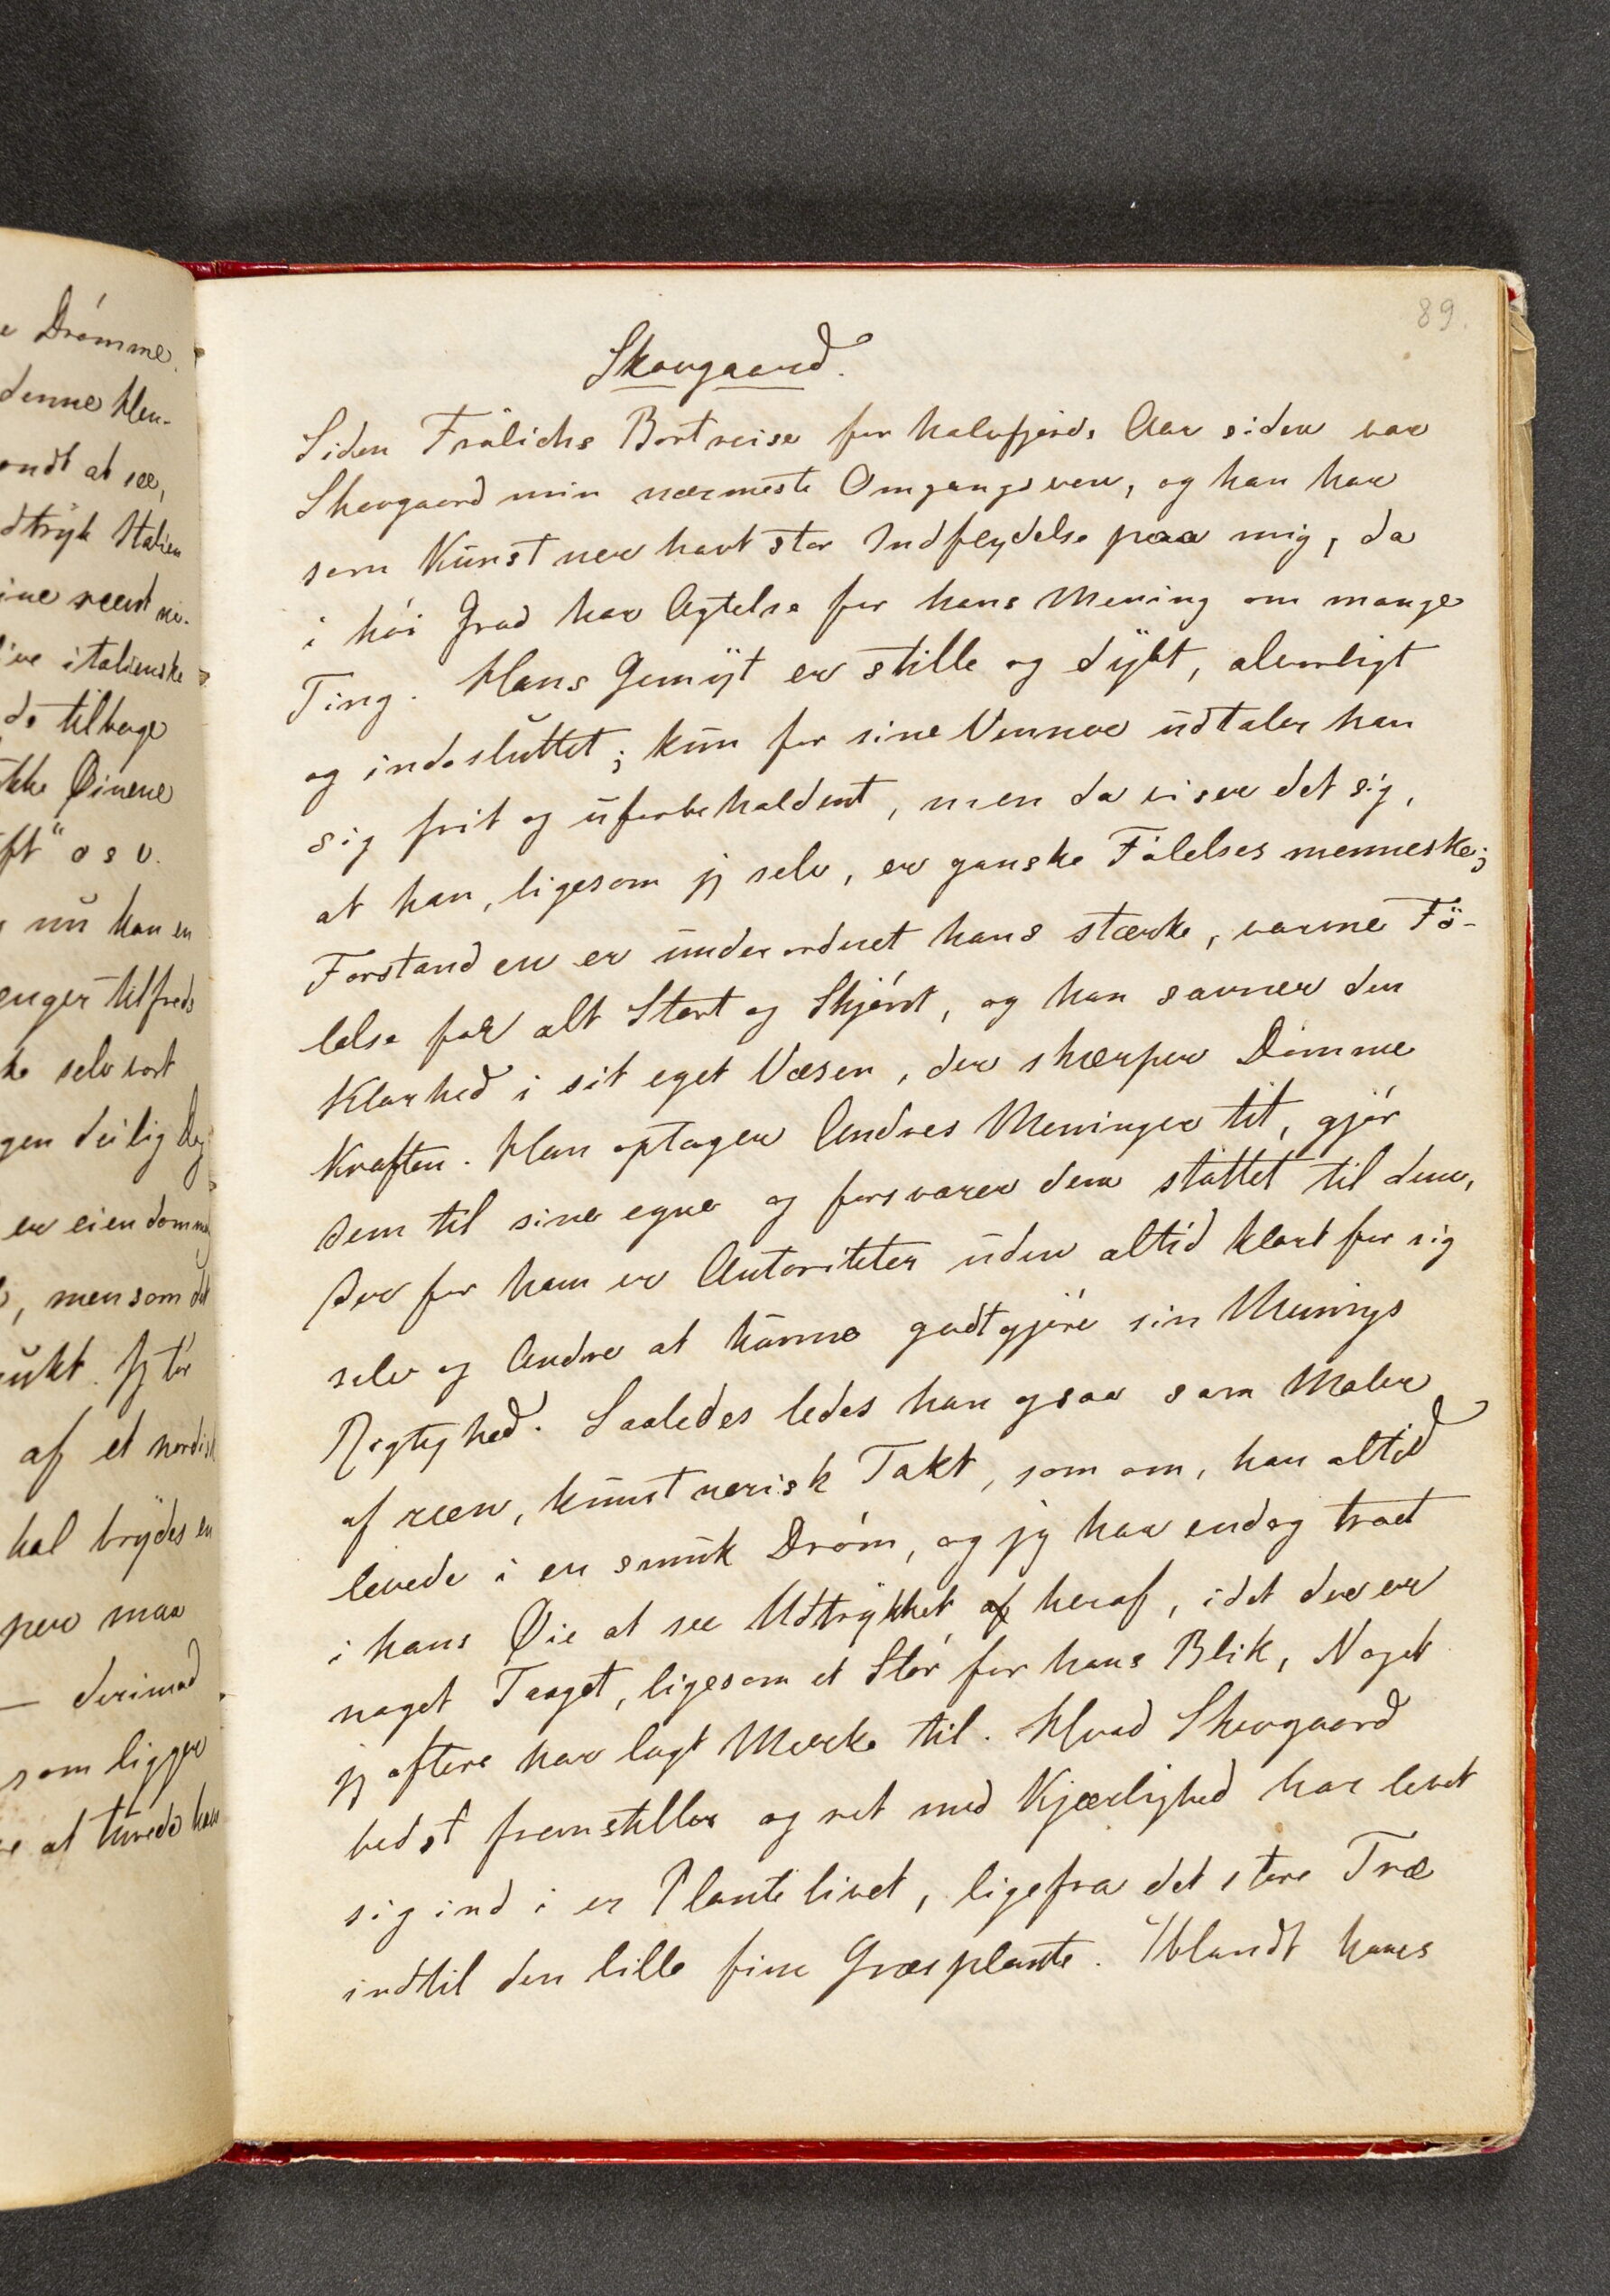 89.
Skovgaard.
Siden Frölichs Bortreise for halvfjerds Aar siden var
Skovgaard min nærmeste Omgangsven, og han har
som Kunstner havt stor Indflydelse paa mig, da
i höi Grad har Agtelse for hans Mening om mange
Ting. Hans Gemyt er stille og dybt, alvorligt
og indesluttet; kun for sine Venner udtaler han
sig frit og uforbeholdent, men da viser det sig,
at han, ligesom jg selv, er ganske Fölelsesmenneske;
Forstanden er underordnet hans stærke, varme Fö-
lelse for alt Stort og Skjönt, og han savner den
Klarhed i sit eget Væsen, der skærper Dömme
Kraften. Han optager Andres Meninger tit, gjör
dem til sine egne og forsvarer dem stöttet til dem,
der for ham er Autoriteter uden altid klart for sig
selv og Andre at kunne godtgjöre sin Menings
Rigtighed. Saaledes ledes han ogsaa som Maler
af reen, kunstnerisk Takt, som om, han altid
levede i en smuk Dröm, og jg har endog troet
i hans Øie at see Udtrykket af heraf, idet der er
noget Taaget, ligesom et Slör for hans Blik, Noget
jg oftere har lagt Mærke til. Hvad Skovgaard
bedst fremstiller og ret med Kjærlighed har levet
sig ind i er Plantelivet, ligefra det store Træ
indtil den lille fine Græsplante. Iblandt hans
e Drömme.
denne Hen-
ondt at see,
dtryk Italien
ine reent
ive italienske
de tilbage
ikke Øinene
ft" o s v.
nu kan en
enger tilfreds
ke selv vort
gen deilig
er eiendomme
, men som det
ukt. Jg tör
af et nordisk
kal brydes en
per maa
— derimod
som ligger
at turede